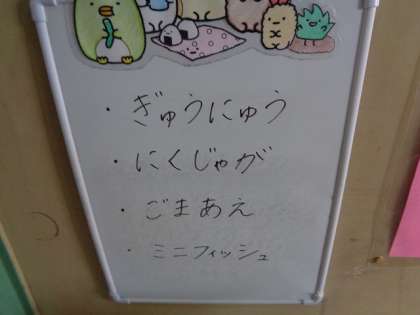 ・ぎゅうにゅう
・にくじゃが
・ごまあえ
・ミニフィッシュ